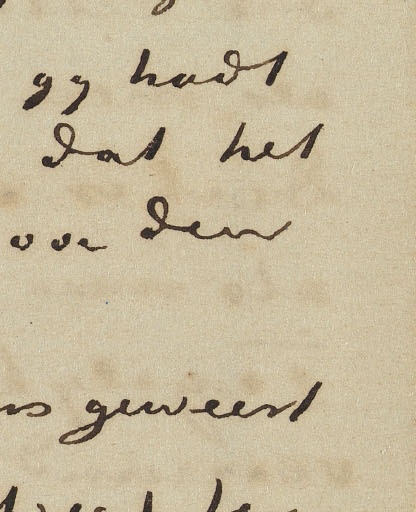 gy hadt
dat het
oor den
ns geweest